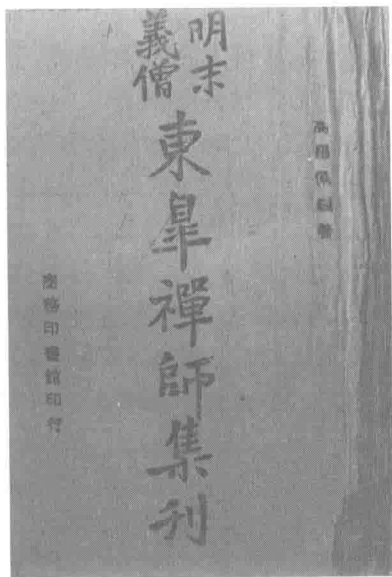 高羅佩編著
明末
義僧
東皐禪師集刊
商務印書館印行